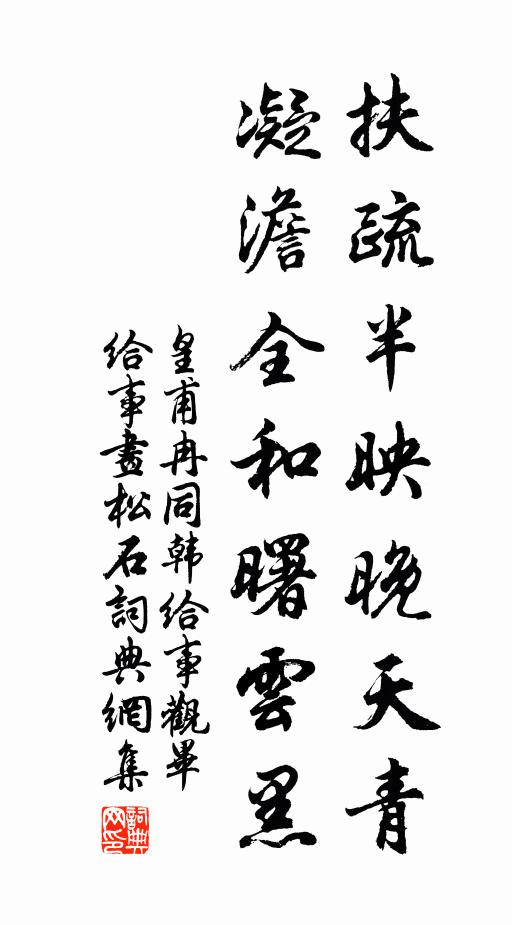 扶疏半映晚天青
凝澹全和曙雲黑
皇甫冉同韩给事觀畢
给事畫松石詞典網集
詞典
网印